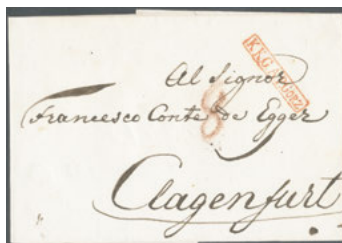 Al Signor
Francesco Conte de Egger
8
Clagenfurt